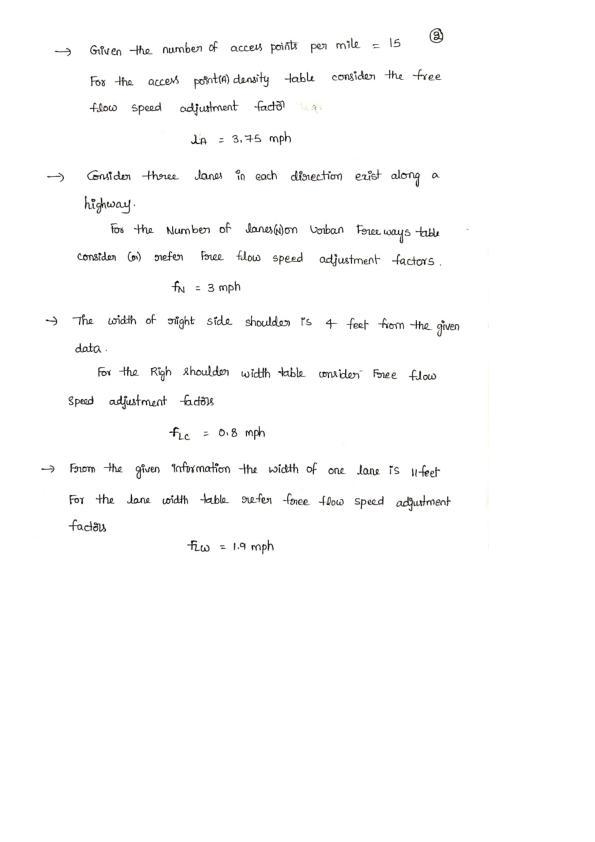 ②
→ Given the number of access points per mile = 15
For the access point(A) density table consider the free
flow speed adjustment factor
fA = 3.75 mph
→ Consider three lanes in each direction exist along a
highway.
For the Number of lanes(N) on Urban Free ways table
consider (or) refer Free flow speed adjustment factors.
fN = 3 mph
→ The width of right side shoulder is 4 feet from the given
data.
For the Righ shoulder width table consider Free flow
Speed adjustment factors
fLC = 0.8 mph
→ From the given information the width of one lane is 11-feet
For the lane width table refer free flow speed adjustment
factors
fLW = 1.9 mph